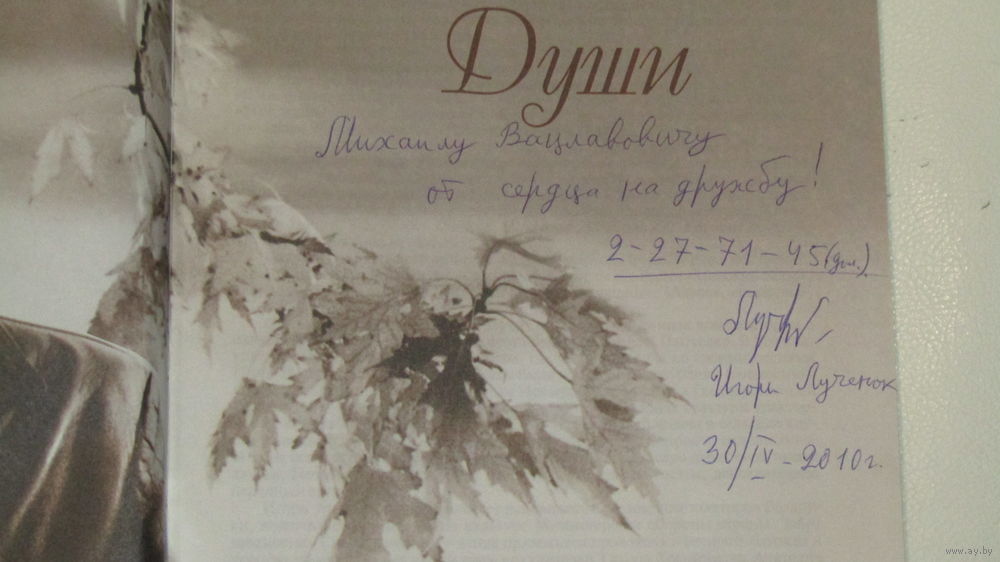 Души
Михаилу Вацлавовичу
от сердца на дружбу!
2-27-71-45 (дом.)
Игорь Лученок
30/IV - 2010 г.
www.ay.by